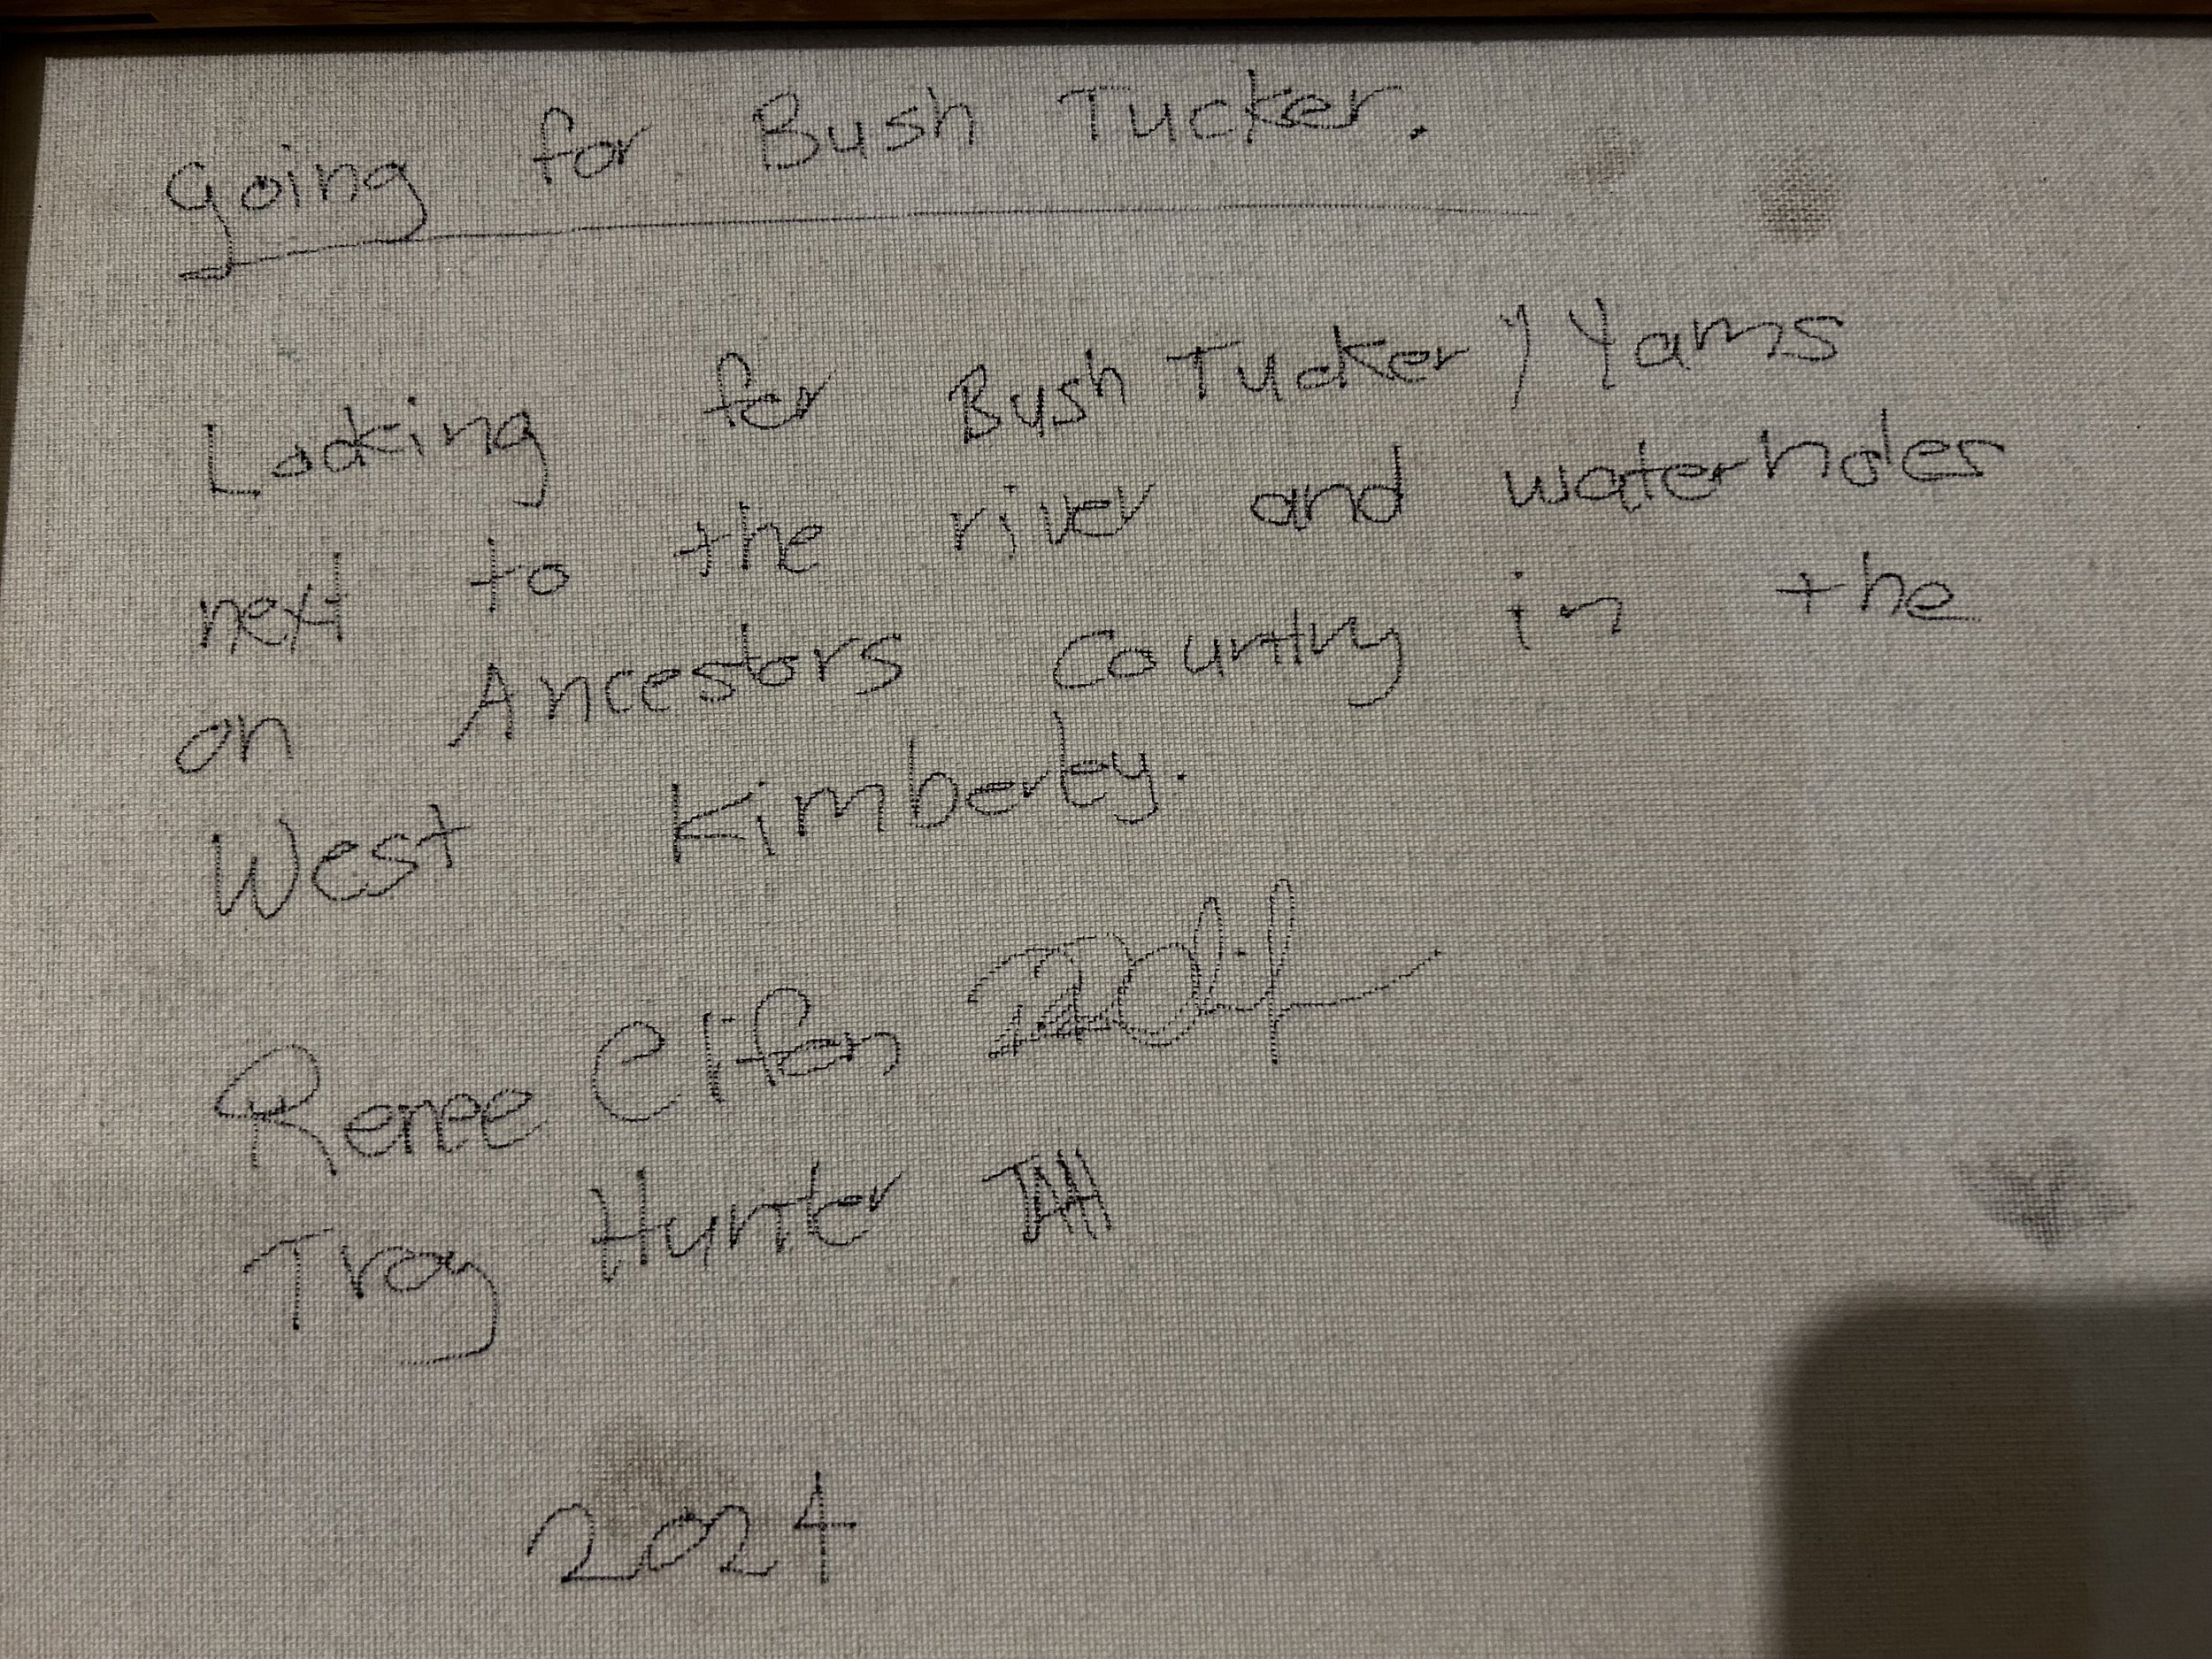 Going for Bush Tucker.
Looking for Bush Tucker / Yams
next to the river and waterholes
on Ancestors Country in the
West Kimberley.
Renee
Troy Hunter TAH
2024